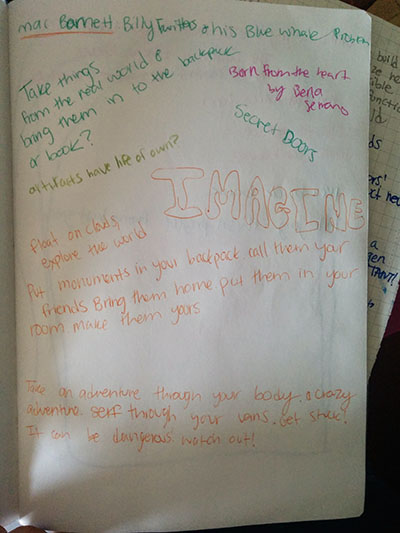 mac Barnett Billy Twitters & his Blue Whale Problem
Take things
from the real world &
bring them in to the backpack
or book?
Born from the heart
by Berta
Serrano
Secret Doors
artifacts have life of own?
IMAGINE
float on clouds,
explore the world
Put monuments in your backpack call them your
friends Bring them home put them in your
room make them yours
Take an adventure through your body. a crazy
adventure. serf through your vans. Get stuck!
It can be dangerous watch out!
build